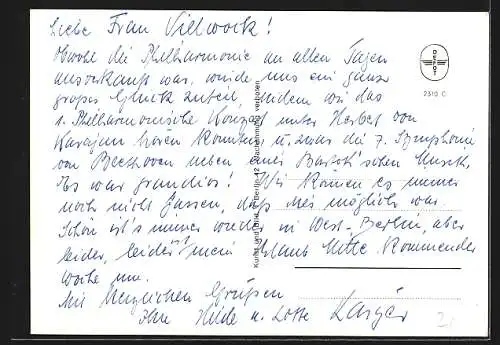 Liebe Frau Vielwock!
Obwohl die Philharmonie an allen Tagen
ausverkauft war, wurde uns ein ganz
großes Glück zuteil, indem wir das
1. Philharmonische Konzert unter Herbert von
Karajan hören konnten u. zwar die 7. Symphonie
von Beethoven neben einer Bartok'schen Musik.
Es war grandios! Wir können es immer
noch nicht fassen, daß dies möglich war.
Schön ist's immer wieder in West-Berlin, aber
leider, leider ist mein Urlaub Mitte kommender
Woche um.
Mit herzlichen Grüßen
Ihre Hilde u. Lotte
DEFOT
2310 C
Kunst und Bild, Berlin 12 Nachahmung verboten